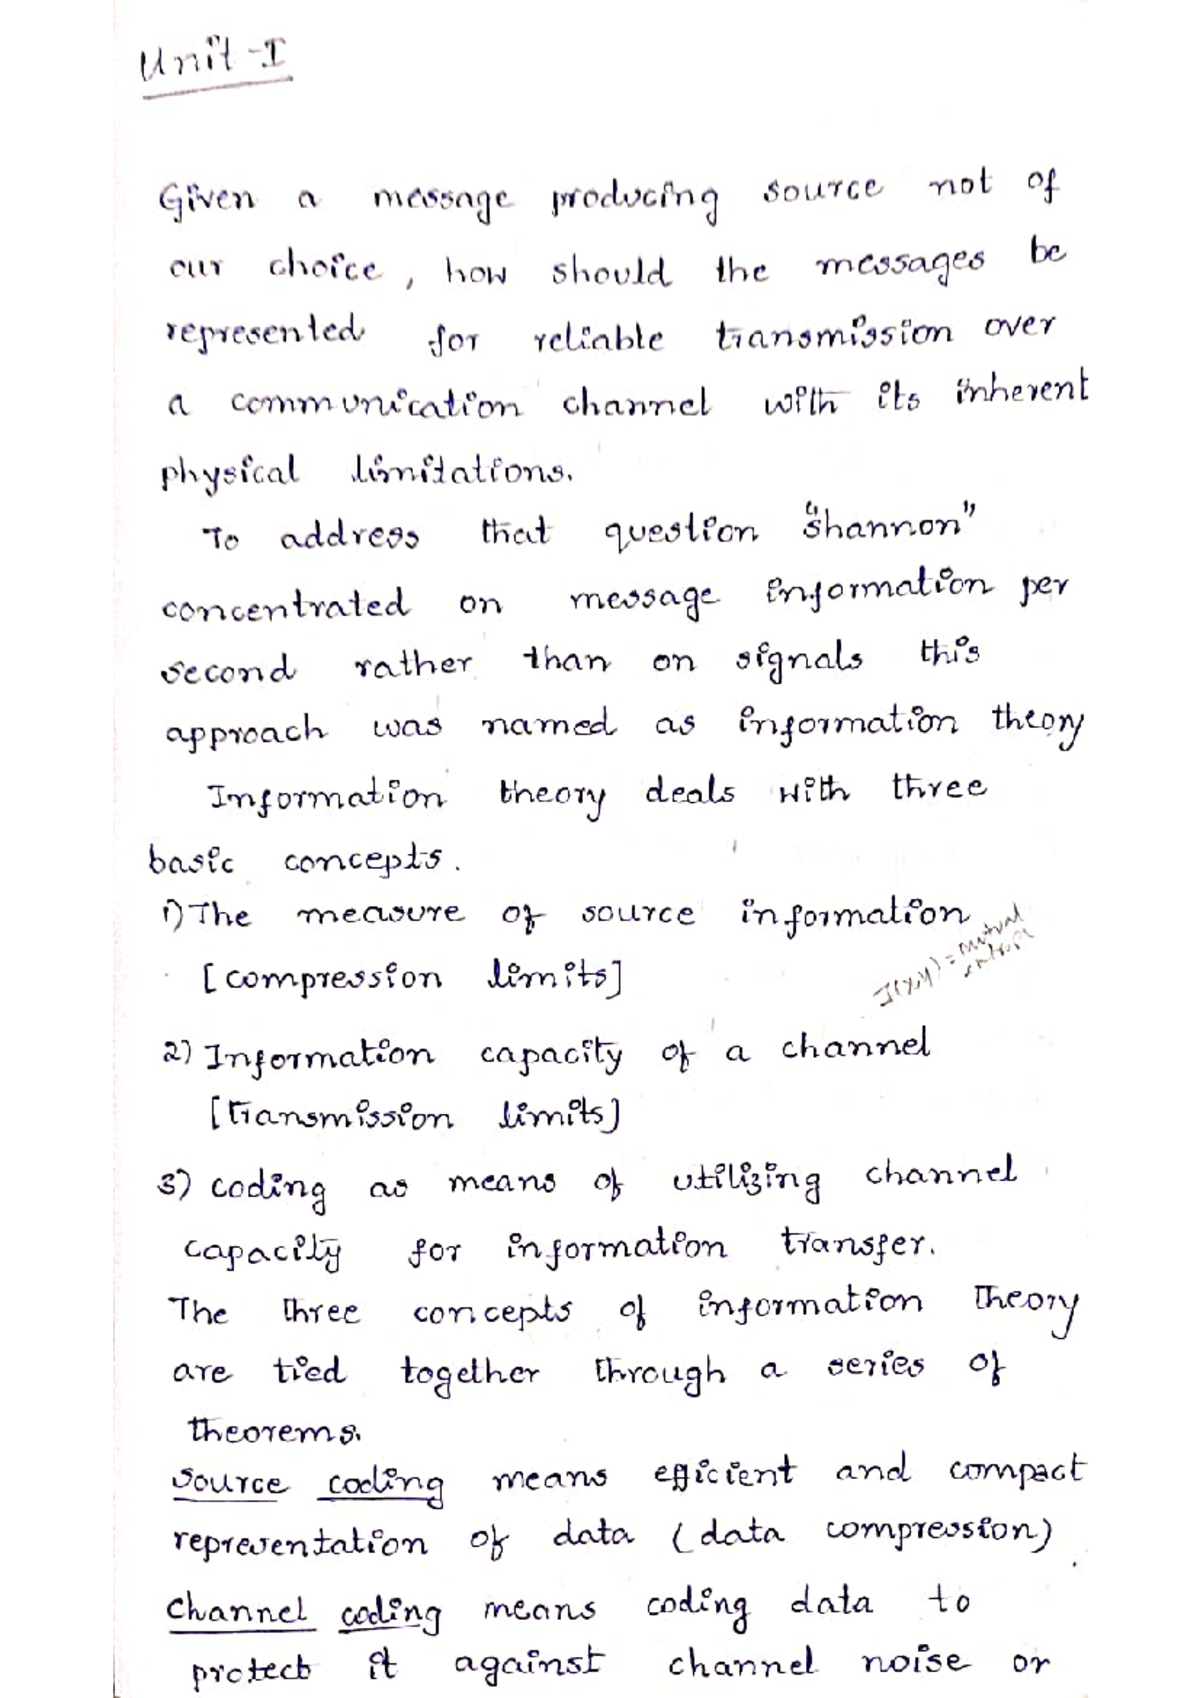 Unit-I
Given a message producing source not of
our choice, how should the messages be
represented for reliable transmission over
a communication channel with its inherent
physical limitations.
To address that question "Shannon"
concentrated on message information per
second rather than on signals this
approach was named as information theory
Information theory deals with three
basic concepts.
1) The measure of source information
[compression limits]
I(x,y) = mutual
2) Information capacity of a channel
[transmission limits]
3) coding as means of utilizing channel
capacity for information transfer.
The three concepts of information Theory
are tied together through a series of
theorems.
Source coding means efficient and compact
representation of data (data compression)
Channel coding means coding data to
protect it against channel noise or